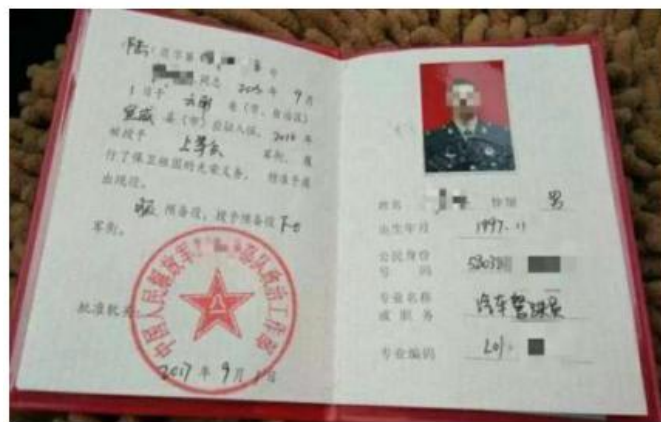 陆退字第 号
同志 2015 年 9 月
1 日于 云南 省（市、自治区）
宣威 县（市）应征入伍，2016 年
被授予 上等兵 军衔，履
行了保卫祖国的光荣义务，特准予退
出现役。
预备役，授予预备役
军衔。
批准机关：
中国人民解放军 部队政治工作部
2017 年 9 月 1 日
姓名 性别 男
出生年月 1997.11
公民身份
号 码
专业名称
或 职 务 汽车驾驶员
专业编码